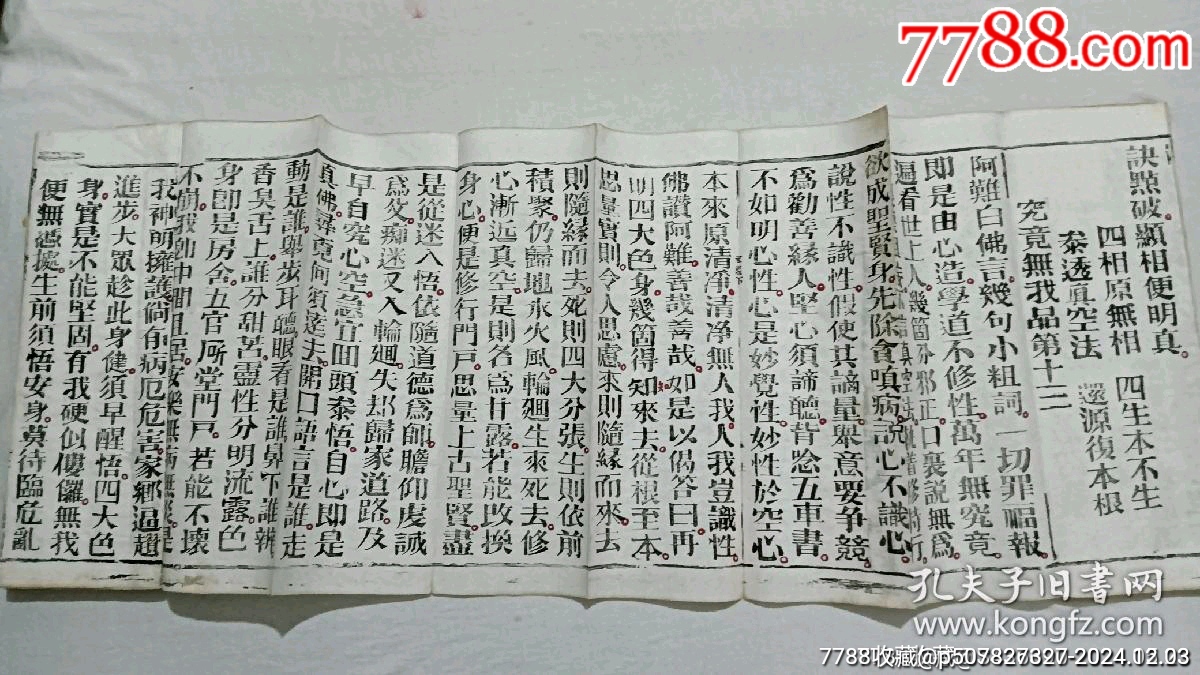 7788.com
訣點破顯相便明真
四相原無相 四生本不生
叅透眞空法 還源復本根
究竟無我品第十二
阿難白佛言幾句小粗詞一切罪福報
即是由心造學道不修性萬年無究竟
遍看世上人幾箇分邪正口裏說無爲
欲成聖賢身先除貪嗔病說心不識心
說性不識性假使其謫量舉意要爭競
爲勸善緣人堅心須諦聽肯唸五車書
不如明心性心是妙覺性妙性於空心
本來原清淨清净無人我人我豈識性
佛讃阿難善哉善哉如是以偈答曰再
明四大色身幾箇得知來去從根至本
思量實則令人思慮來則隨緣而來去
則隨緣而去死則四大分張生則依前
積聚仍歸地水火風輪廻生來死去修
心漸近真空是則名爲甘露若能改換
身心便是修行門戸思量上古聖賢盡
是從迷入悟依隨道德爲師瞻仰虔誠
爲父痴迷又入輪廻失却歸家道路及
早自究心空急宜囬頭叅悟自心即是
真佛尋覔何須遠去開口語言是誰走
動是誰舉步耳聽眼看是誰鼻下誰辨
香臭舌上誰分甜苦靈性分明流露色
身卽是房舍五官厛堂門戸若能不壞
不崩我卽中間
我神明擁護倘有病厄危害家鄉逼趲
進步大眾趁此身健須早醒悟四大色
身實是不能堅固有我硬似僂儸無我
便無憑據生前須悟安身莫待臨危亂
孔夫子旧书网
www.kongfz.com
7788收藏@p507827327-2024.12.03